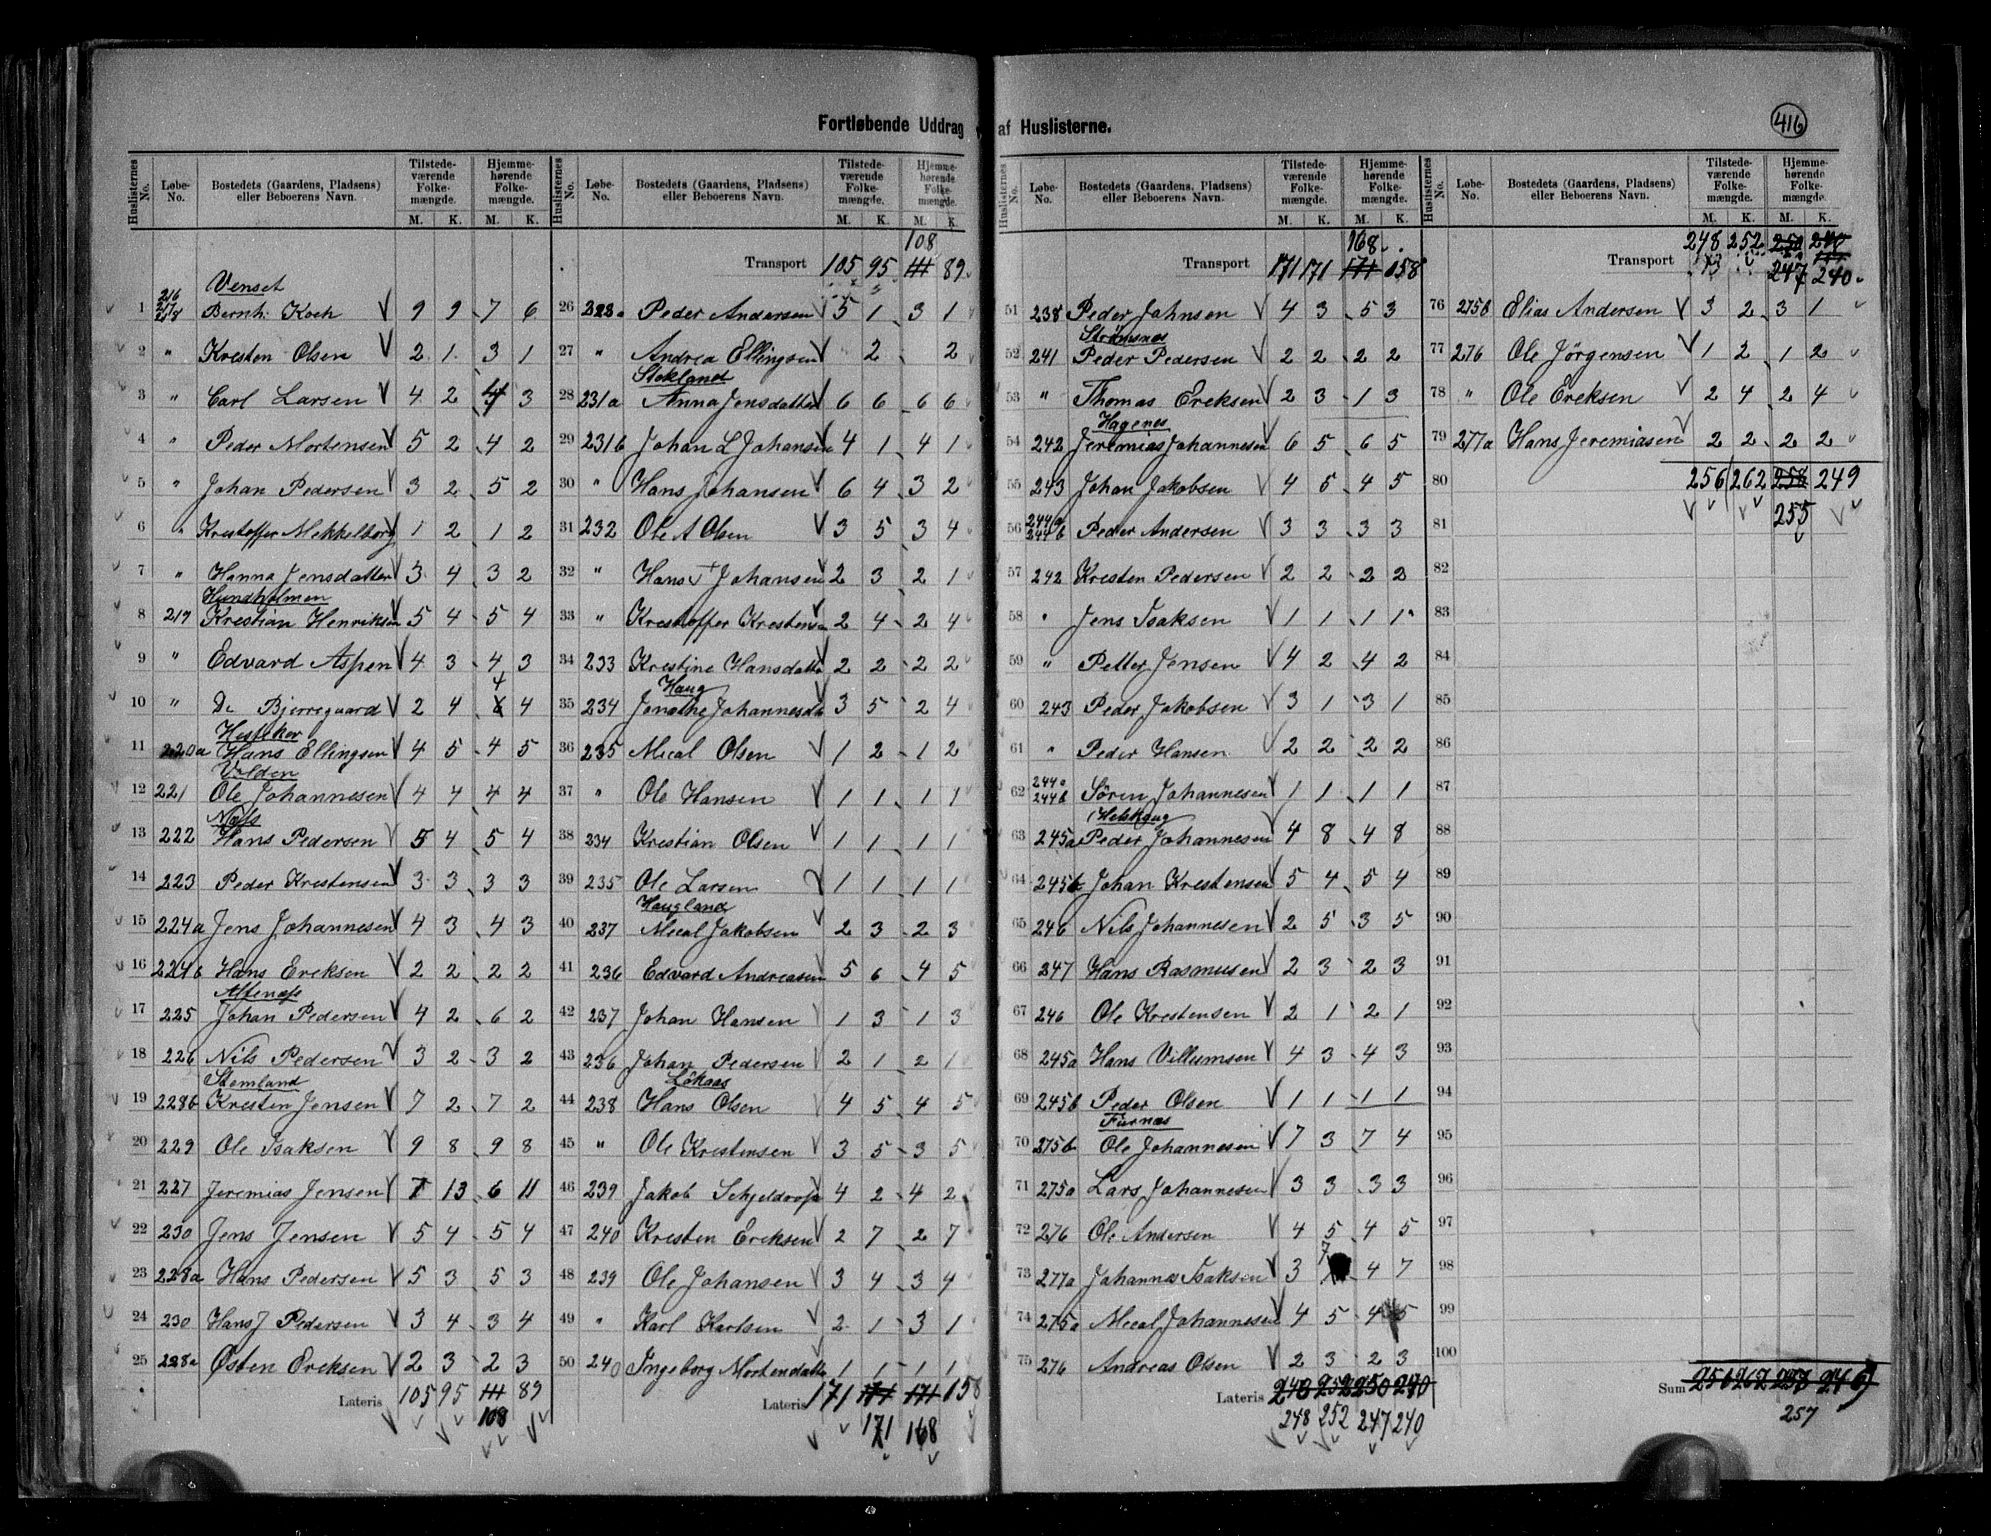 Fortløbende Uddrag af Huslisterne.
416
Huslisternes No. Løbe-No. Bostedets (Gaardens, Pladsens) eller Beboerens Navn. Tilstedeværende Folkemængde. M. K. Hjemmehørende Folkemængde. M. K.
Venset
1 216 218 Bernh. Koch 9 9 7 6
2 " Kresten Olsen 2 1 3 1
3 " Carl Larsen 4 2 4 3
4 " Peder Mortensen 5 2 4 2
5 " Johan Pedersen 3 2 5 2
6 " Krestoffer Mekkelborg 1 2 1 2
7 " Hanna Jensdatter 3 4 3 2
Hundholmen
8 217 Krestian Henriksen 5 4 5 4
9 " Edvard Aspen 4 3 4 3
10 " De Bjerregaard 2 4 4 4
11 220a Hans Ellingsen 4 5 4 5
Valden
12 221 Ole Johannesen 4 4 4 4
13 222 Hans Pedersen 5 4 5 4
14 223 Peder Krestensen 3 3 3 3
15 224a Jens Johannesen 4 3 4 3
16 224b Hans Ereksen 2 2 2 2
Alfenæs
17 225 Johan Pedersen 4 2 6 2
18 226 Nils Pedersen 3 2 3 2
Stemland
19 228b Kresten Jensen 7 2 7 2
20 229 Ole Isaksen 9 8 9 8
21 227 Jeremias Jensen 7 13 6 11
22 230 Jens Jensen 5 4 5 4
23 228a Hans Pedersen 5 3 5 3
24 230 Hans J Pedersen 3 4 3 4
25 228a Østen Ereksen 2 3 2 3
Lateris 105 95 111 89
108
Huslisternes No. Løbe-No. Bostedets (Gaardens, Pladsens) eller Beboerens Navn. Tilstedeværende Folkemængde. M. K. Hjemmehørende Folkemængde. M. K.
108
Transport 105 95 111 89
26 228a Peder Andersen 5 1 3 1
27 " Andrea Ellingsen 2 2
Stokland
28 231a Anna Jensdatter 6 6 6 6
29 231b Johan L Johansen 4 1 4 1
30 " Hans Johansen 6 4 3 2
31 232 Ole A Olsen 3 5 3 4
32 " Hans J Johansen 2 3 2 1
33 " Krestoffer Krestensen 2 4 2 4
34 233 Krestine Hansdatter 2 2 2 2
Haug
35 234 Jonethe Johannesda 3 5 2 4
36 235 Mecal Olsen 1 2 1 2
37 " Ole Hansen 1 1 1 1
38 234 Krestian Olsen 1 1 1 1
39 235 Ole Larsen 1 1 1 1
Haugland
40 237 Mecal Jakobsen 2 3 2 3
41 236 Edvard Andreasen 5 6 4 5
42 237 Johan Hansen 1 3 1 3
43 236 Johan Pedersen 2 1 2 1
Løkaas
44 238 Hans Olsen 4 5 4 5
45 " Ole Krestensen 3 5 3 5
46 239 Jakob Schjeldrop 4 2 4 2
47 240 Kresten Ereksen 2 7 2 7
48 239 Ole Johansen 3 4 3 4
49 " Karl Karlsen 2 1 3 1
50 240 Ingeborg Mortensdatter 1 1 1 1
Lateris 171 171 171 158
171 168
Huslisternes No. Løbe-No. Bostedets (Gaardens, Pladsens) eller Beboerens Navn. Tilstedeværende Folkemængde. M. K. Hjemmehørende Folkemængde. M. K.
168
Transport 171 171 171 158
51 238 Peder Johnsen 4 3 5 3
Strømsnes
52 241 Peder Pedersen 2 2 2 2
53 " Thomas Ereksen 2 3 1 3
Hagenes
54 242 Jeremias Johannesen 6 5 6 5
55 243 Johan Jakobsen 4 5 4 5
56 244a 244b Peder Andersen 3 3 3 3
57 242 Kresten Pedersen 2 2 2 2
58 " Jens Isaksen 1 1 1 1
59 " Petter Jensen 4 2 4 2
60 243 Peder Jakobsen 3 1 3 1
61 " Peder Hansen 2 2 2 2
62 244a 244b Sören Johannesen 1 1 1 1
Helskaug
63 245a Peder Johannesen 4 8 4 8
64 245b Johan Krestensen 5 4 5 4
65 246 Nils Johannesen 2 5 3 5
66 247 Hans Rasmusen 2 3 2 3
67 246 Ole Krestensen 2 1 2 1
68 245a Hans Villumsen 4 3 4 3
69 245b Peder Olsen 1 1 1 1
Furnæs
70 275b Ole Johannesen 7 3 7 4
71 275a Lars Johannesen 3 3 3 3
72 276 Ole Andersen 4 5 4 5
73 277a Johannes Isaksen 3 7 4 7
74 275a Mecal Johannesen 4 5 4 5
75 276 Andreas Olsen 2 3 2 3
Lateris 248 252 250 240
248 252 247 240
Huslisternes No. Løbe-No. Bostedets (Gaardens, Pladsens) eller Beboerens Navn. Tilstedeværende Folkemængde. M. K. Hjemmehørende Folkemængde. M. K.
Transport 248 252 250 240
247 240
76 275b Elias Andersen 3 2 3 1
77 276 Ole Jørgensen 1 2 1 2
78 " Ole Ereksen 2 4 2 4
79 277a Hans Jeremiasen 2 2 2 2
80 256 262 256 249
81 255
82
83
84
85
86
87
88
89
90
91
92
93
94
95
96
97
98
99
100
Sum 256 262
257